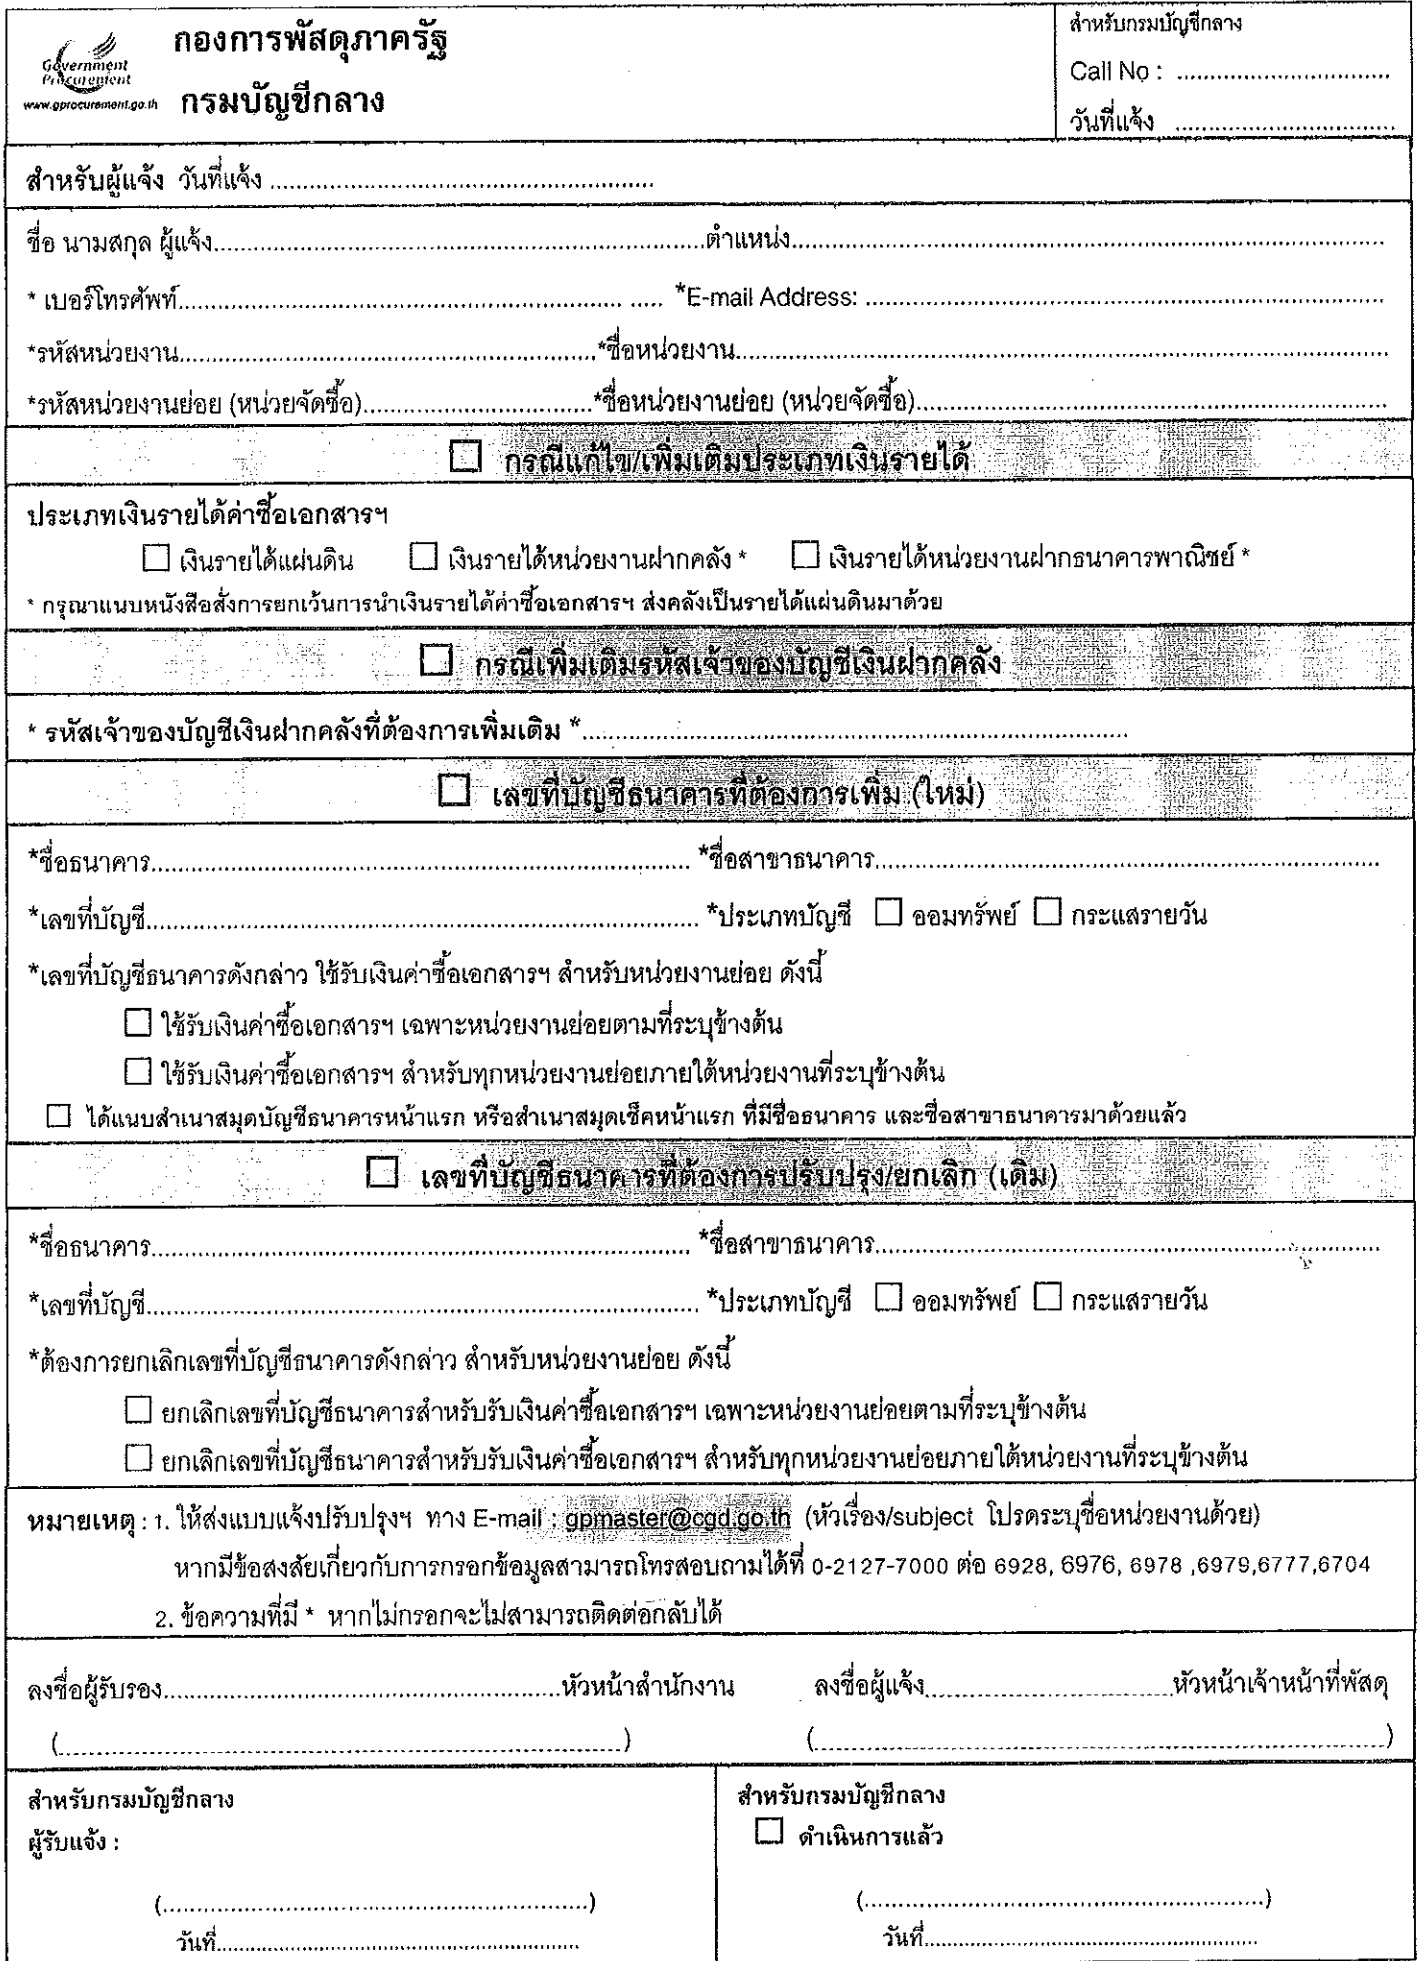 กองการพัสดุภาครัฐ
Government
Procurement
www.gprocurement.go.th
กรมบัญชีกลาง
สำหรับกรมบัญชีกลาง
Call No : ................................
วันที่แจ้ง ................................
สำหรับผู้แจ้ง วันที่แจ้ง ................................
ชื่อ นามสกุล ผู้แจ้ง................................ตำแหน่ง................................
* เบอร์โทรศัพท์................................ ..... *E-mail Address: ................................
*รหัสหน่วยงาน................................*ชื่อหน่วยงาน................................
*รหัสหน่วยงานย่อย (หน่วยจัดซื้อ)................................*ชื่อหน่วยงานย่อย (หน่วยจัดซื้อ)................................
☐ กรณีแก้ไข/เพิ่มเติมประเภทเงินรายได้
ประเภทเงินรายได้ค่าซื้อเอกสารฯ
☐ เงินรายได้แผ่นดิน ☐ เงินรายได้หน่วยงานฝากคลัง * ☐ เงินรายได้หน่วยงานฝากธนาคารพาณิชย์ *
* กรุณาแนบหนังสือสั่งการยกเว้นการนำเงินรายได้ค่าซื้อเอกสารฯ ส่งคลังเป็นรายได้แผ่นดินมาด้วย
☐ กรณีเพิ่มเติมรหัสเจ้าของบัญชีเงินฝากคลัง
* รหัสเจ้าของบัญชีเงินฝากคลังที่ต้องการเพิ่มเติม *................................
☐ เลขที่บัญชีธนาคารที่ต้องการเพิ่ม (ใหม่)
*ชื่อธนาคาร................................ *ชื่อสาขาธนาคาร................................
*เลขที่บัญชี................................ *ประเภทบัญชี ☐ ออมทรัพย์ ☐ กระแสรายวัน
*เลขที่บัญชีธนาคารดังกล่าว ใช้รับเงินค่าซื้อเอกสารฯ สำหรับหน่วยงานย่อย ดังนี้
☐ ใช้รับเงินค่าซื้อเอกสารฯ เฉพาะหน่วยงานย่อยตามที่ระบุข้างต้น
☐ ใช้รับเงินค่าซื้อเอกสารฯ สำหรับทุกหน่วยงานย่อยภายใต้หน่วยงานที่ระบุข้างต้น
☐ ได้แนบสำเนาสมุดบัญชีธนาคารหน้าแรก หรือสำเนาสมุดเช็คหน้าแรก ที่มีชื่อธนาคาร และชื่อสาขาธนาคารมาด้วยแล้ว
☐ เลขที่บัญชีธนาคารที่ต้องการปรับปรุง/ยกเลิก (เดิม)
*ชื่อธนาคาร................................ *ชื่อสาขาธนาคาร................................
*เลขที่บัญชี................................ *ประเภทบัญชี ☐ ออมทรัพย์ ☐ กระแสรายวัน
*ต้องการยกเลิกเลขที่บัญชีธนาคารดังกล่าว สำหรับหน่วยงานย่อย ดังนี้
☐ ยกเลิกเลขที่บัญชีธนาคารสำหรับรับเงินค่าซื้อเอกสารฯ เฉพาะหน่วยงานย่อยตามที่ระบุข้างต้น
☐ ยกเลิกเลขที่บัญชีธนาคารสำหรับรับเงินค่าซื้อเอกสารฯ สำหรับทุกหน่วยงานย่อยภายใต้หน่วยงานที่ระบุข้างต้น
หมายเหตุ : 1. ให้ส่งแบบแจ้งปรับปรุงฯ ทาง E-mail : gpmaster@cgd.go.th (หัวเรื่อง/subject โปรดระบุชื่อหน่วยงานด้วย)
หากมีข้อสงสัยเกี่ยวกับการกรอกข้อมูลสามารถโทรสอบถามได้ที่ 0-2127-7000 ต่อ 6928, 6976, 6978 ,6979,6777,6704
2. ข้อความที่มี * หากไม่กรอกจะไม่สามารถติดต่อกลับได้
ลงชื่อผู้รับรอง................................หัวหน้าสำนักงาน ลงชื่อผู้แจ้ง................................หัวหน้าเจ้าหน้าที่พัสดุ
(................................) (................................)
สำหรับกรมบัญชีกลาง
ผู้รับแจ้ง :
(................................)
วันที่................................
สำหรับกรมบัญชีกลาง
☐ ดำเนินการแล้ว
(................................)
วันที่................................